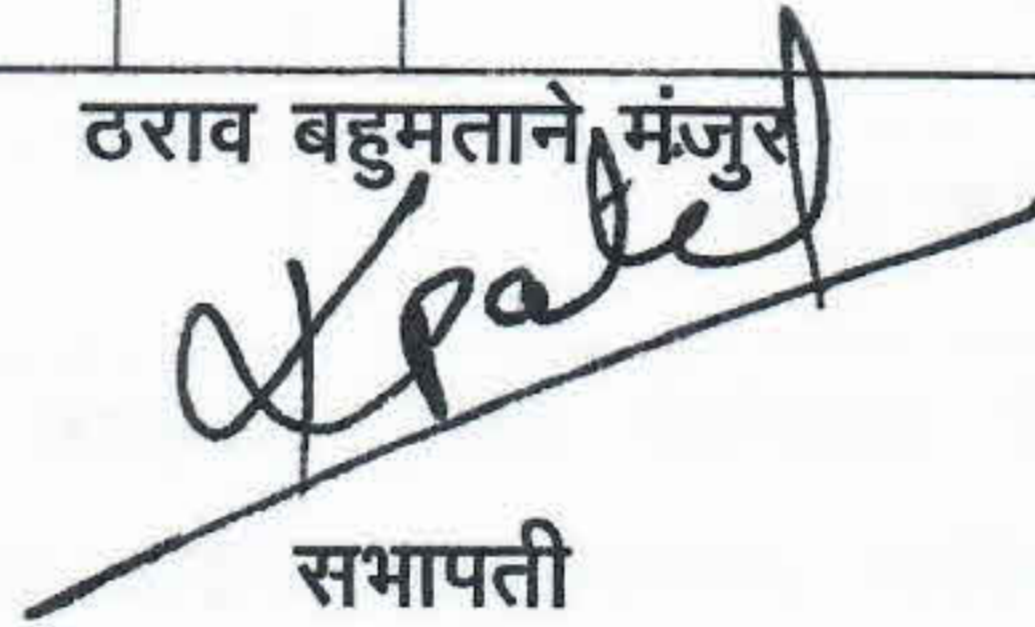 ठराव बहुमताने मंजुर
Kpatel
सभापती